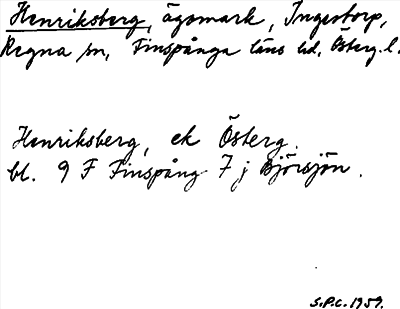 Henriksberg, ägomark, Ingestorp,
Regna sn, Finspånga läns hd, Österg. l.
Henriksberg, ek Österg.
bl. 9 F Finspång 7 j Björsjön.
S.P.C. 1959.